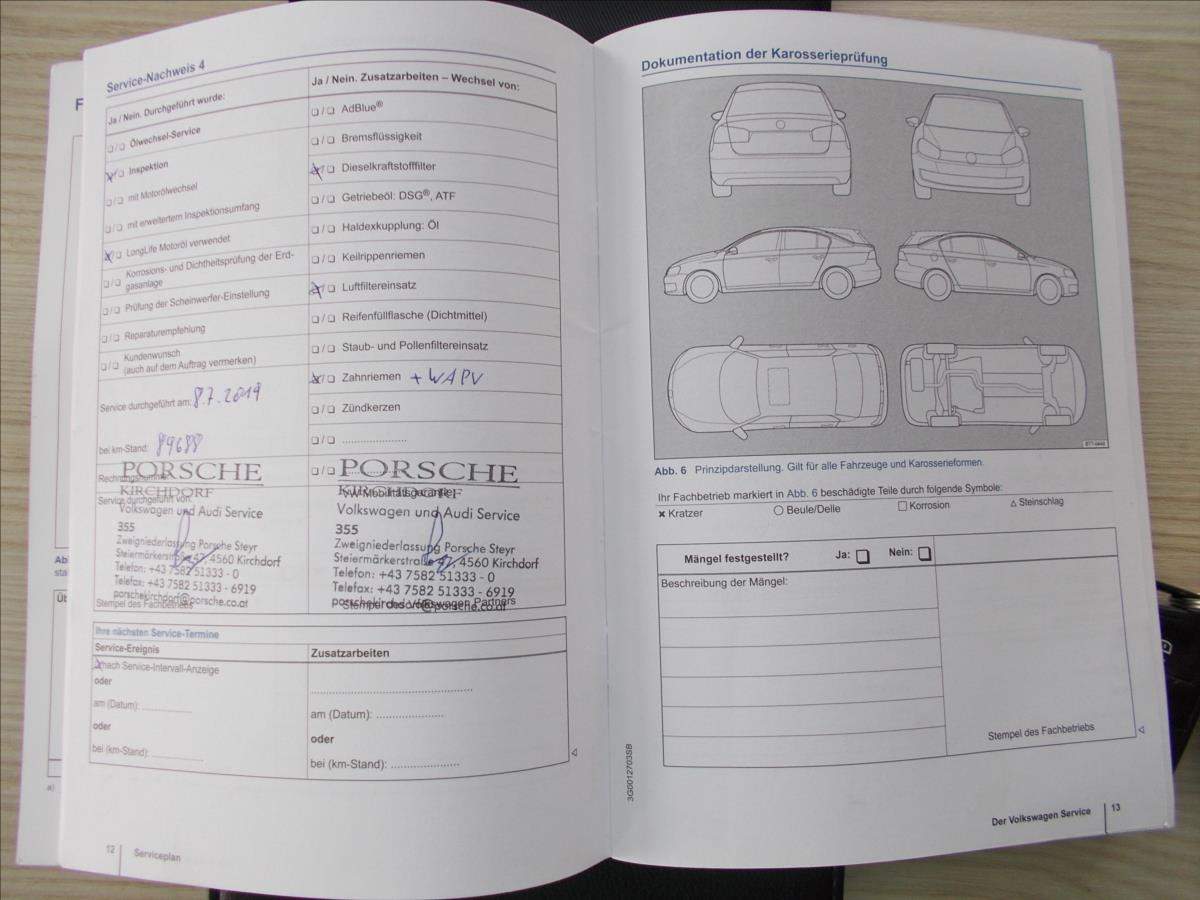 Service-Nachweis 4
Ja / Nein. Durchgeführt wurde:
❏/❏ Ölwechsel-Service
❏/❏ Inspektion
❏/❏ mit Motorölwechsel
❏/❏ mit erweitertem Inspektionsumfang
❏/❏ LongLife Motoröl verwendet
❏/❏ Korrosions- und Dichtheitsprüfung der Erd-
gasanlage
❏/❏ Prüfung der Scheinwerfer-Einstellung
❏/❏ Reparaturempfehlung
❏/❏ Kundenwunsch
(auch auf dem Auftrag vermerken)
Service durchgeführt am: 8.7.2019
bei km-Stand: 89688
PORSCHE
KIRCHDORF
Service durchgeführt von:
Volkswagen und Audi Service
355
Zweigniederlassung Porsche Steyr
Steiermärkerstraße 47, 4560 Kirchdorf
Telefon: +43 7582 51333 - 0
Telefax: +43 7582 51333 - 6919
porschekirchdorf@porsche.co.at
Stempel des Fachbetriebs
Ja / Nein. Zusatzarbeiten – Wechsel von:
❏/❏ AdBlue®
❏/❏ Bremsflüssigkeit
❏/❏ Dieselkraftstofffilter
❏/❏ Getriebeöl: DSG®, ATF
❏/❏ Haldexkupplung: Öl
❏/❏ Keilrippenriemen
❏/❏ Luftfiltereinsatz
❏/❏ Reifenfüllflasche (Dichtmittel)
❏/❏ Staub- und Pollenfiltereinsatz
❏/❏ Zahnriemen + WAPV
❏/❏ Zündkerzen
❏/❏ .....................
❏/❏ PORSCHE
KIRCHDORF
VW Mobilitätsgarantie
Volkswagen und Audi Service
355
Zweigniederlassung Porsche Steyr
Steiermärkerstraße 47, 4560 Kirchdorf
Telefon: +43 7582 51333 - 0
Telefax: +43 7582 51333 - 6919
porschekirchdorf@porsche.co.at
Stempel des Volkswagen Partners
Ihre nächsten Service-Termine
Service-Ereignis
nach Service-Intervall-Anzeige
oder
am (Datum): ................
oder
bei (km-Stand): ................
Zusatzarbeiten
..................................................
am (Datum): .....................
oder
bei (km-Stand): .....................
12 Serviceplan
Dokumentation der Karosserieprüfung
Abb. 6 Prinzipdarstellung. Gilt für alle Fahrzeuge und Karosserieformen.
Ihr Fachbetrieb markiert in Abb. 6 beschädigte Teile durch folgende Symbole:
✖ Kratzer ○ Beule/Delle □ Korrosion △ Steinschlag
Mängel festgestellt? Ja: ❏ Nein: ❏
Beschreibung der Mängel:
Stempel des Fachbetriebs
3G0012703SB
Der Volkswagen Service 13